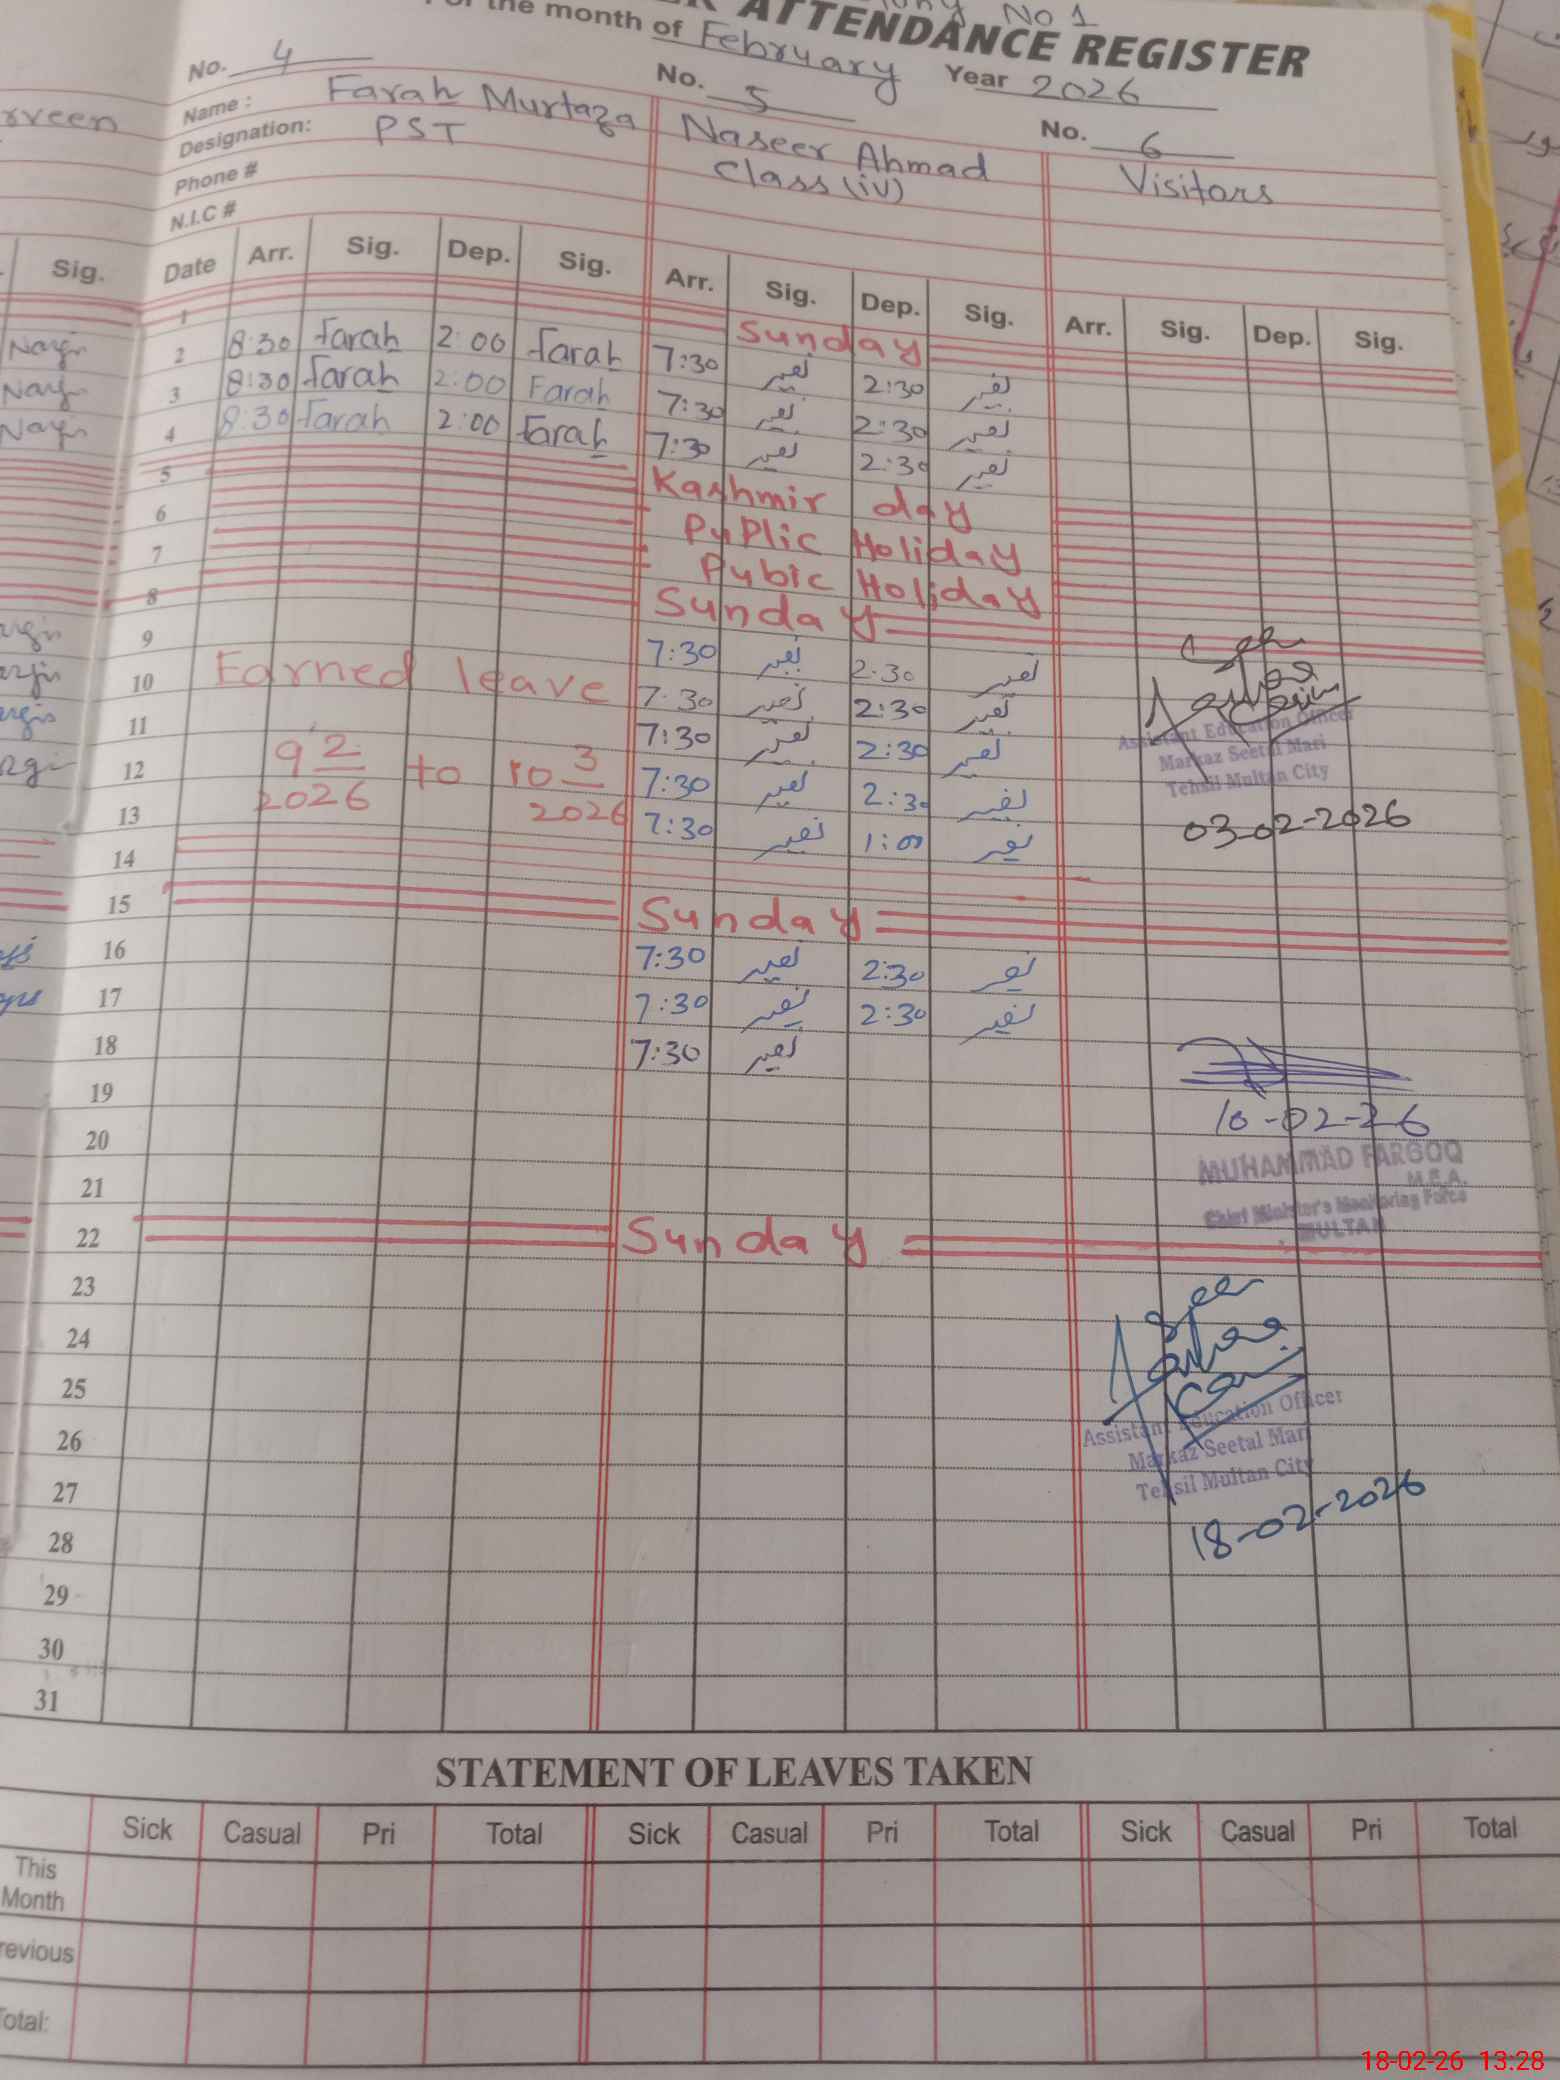 No 1
ATTENDANCE REGISTER
For the month of February Year 2026
No. 4 No. 5 No. 6
Name: Farah Murtaza Naseer Ahmad Visitors
Designation: PST Class (iv)
Phone #
N.I.C #
Sig. Date Arr. Sig. Dep. Sig. Arr. Sig. Dep. Sig. Arr. Sig. Dep. Sig.
1 Sunday
2 8:30 Farah 2:00 Farah 7:30 نصیر 2:30 نصیر
3 8:30 Farah 2:00 Farah 7:30 نصیر 2:30 نصیر
4 8:30 Farah 2:00 Farah 7:30 نصیر 2:30 نصیر
5 Kashmir day
6 PuPlic Holiday
7 Pubic Holiday
8 Sunday
9 7:30 نصیر 2:30 نصیر
10 Earned leave 7:30 نصیر 2:30 نصیر
11 7:30 نصیر 2:30 نصیر
12 9 2 2026 to 10 3 2026 7:30 نصیر 2:30 نصیر
13 7:30 نصیر 1:00 نصیر
Assistant Education Officer
Markaz Seetal Mari
Tehsil Multan City
03-02-2026
14
15 Sunday
16 7:30 نصیر 2:30 نصیر
17 7:30 نصیر 2:30 نصیر
18 7:30 نصیر
19
10-02-26
20
MUHAMMAD FAROOQ
M.E.A.
21
Chief Minister's Monitoring Force
MULTAN
22 Sunday
23
24
25
Assistant Education Officer
26
Markaz Seetal Mari
27
Tehsil Multan City
18-02-2026
28
29
30
31
STATEMENT OF LEAVES TAKEN
Sick Casual Pri Total Sick Casual Pri Total Sick Casual Pri Total
This
Month
revious
Total:
18-02-26 13:28